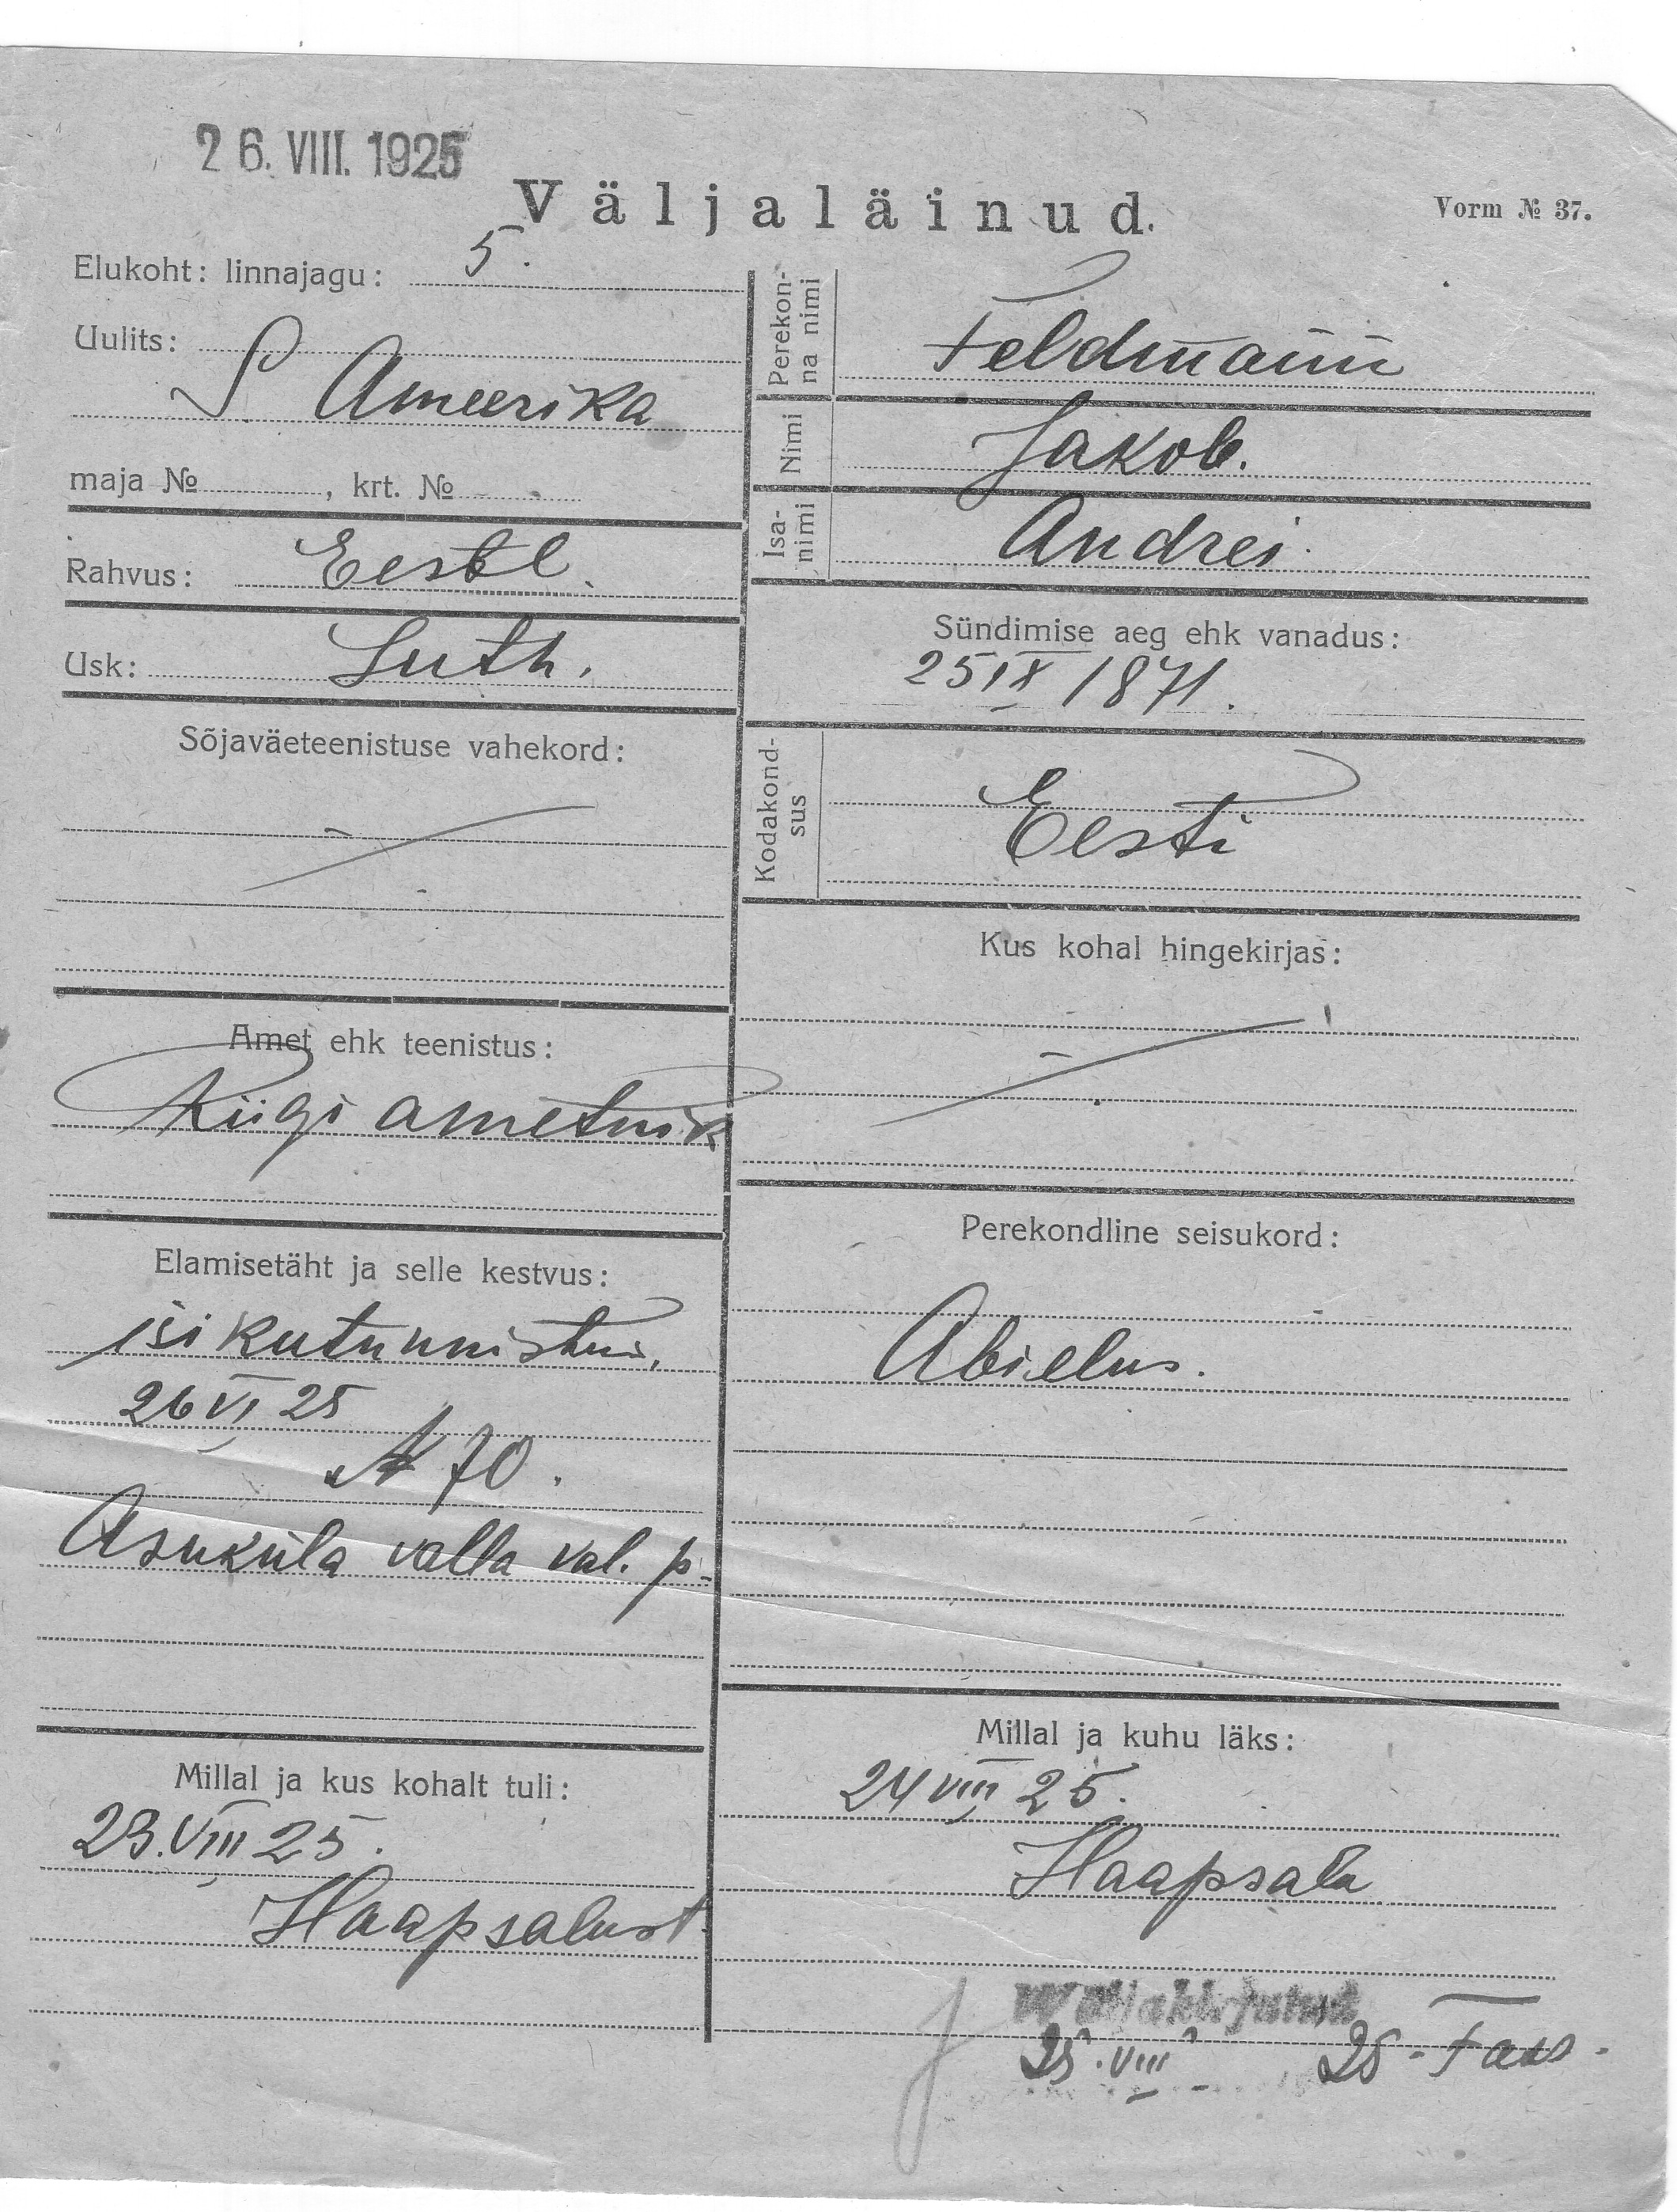 26. VIII. 1925
Väljaläinud.
Vorm № 37.
Elukoht: linnajagu: 5.
Uulits:
S Ameerika
maja №, krt. №
Rahvus: Eestl.
Usk: Luth.
Sõjaväeteenistuse vahekord:
Amet ehk teenistus:
Riigi ametnik
Elamisetäht ja selle kestvus:
isikutunnistus,
26 VI 25
№ 70.
Asuküla valla val. p.
Millal ja kus kohalt tuli:
23. VIII 25.
Haapsalust
Perekonna nimi
Feldmann
Nimi
Jakob.
Isanimi
Andrei.
Sündimise aeg ehk vanadus:
25 IX 1871.
Kodakondsus
Eesti
Kus kohal hingekirjas:
Perekondline seisukord:
Abielus.
Millal ja kuhu läks:
24 VIII 25.
Haapsalu
Wäljakirjutud
25. VIII 25